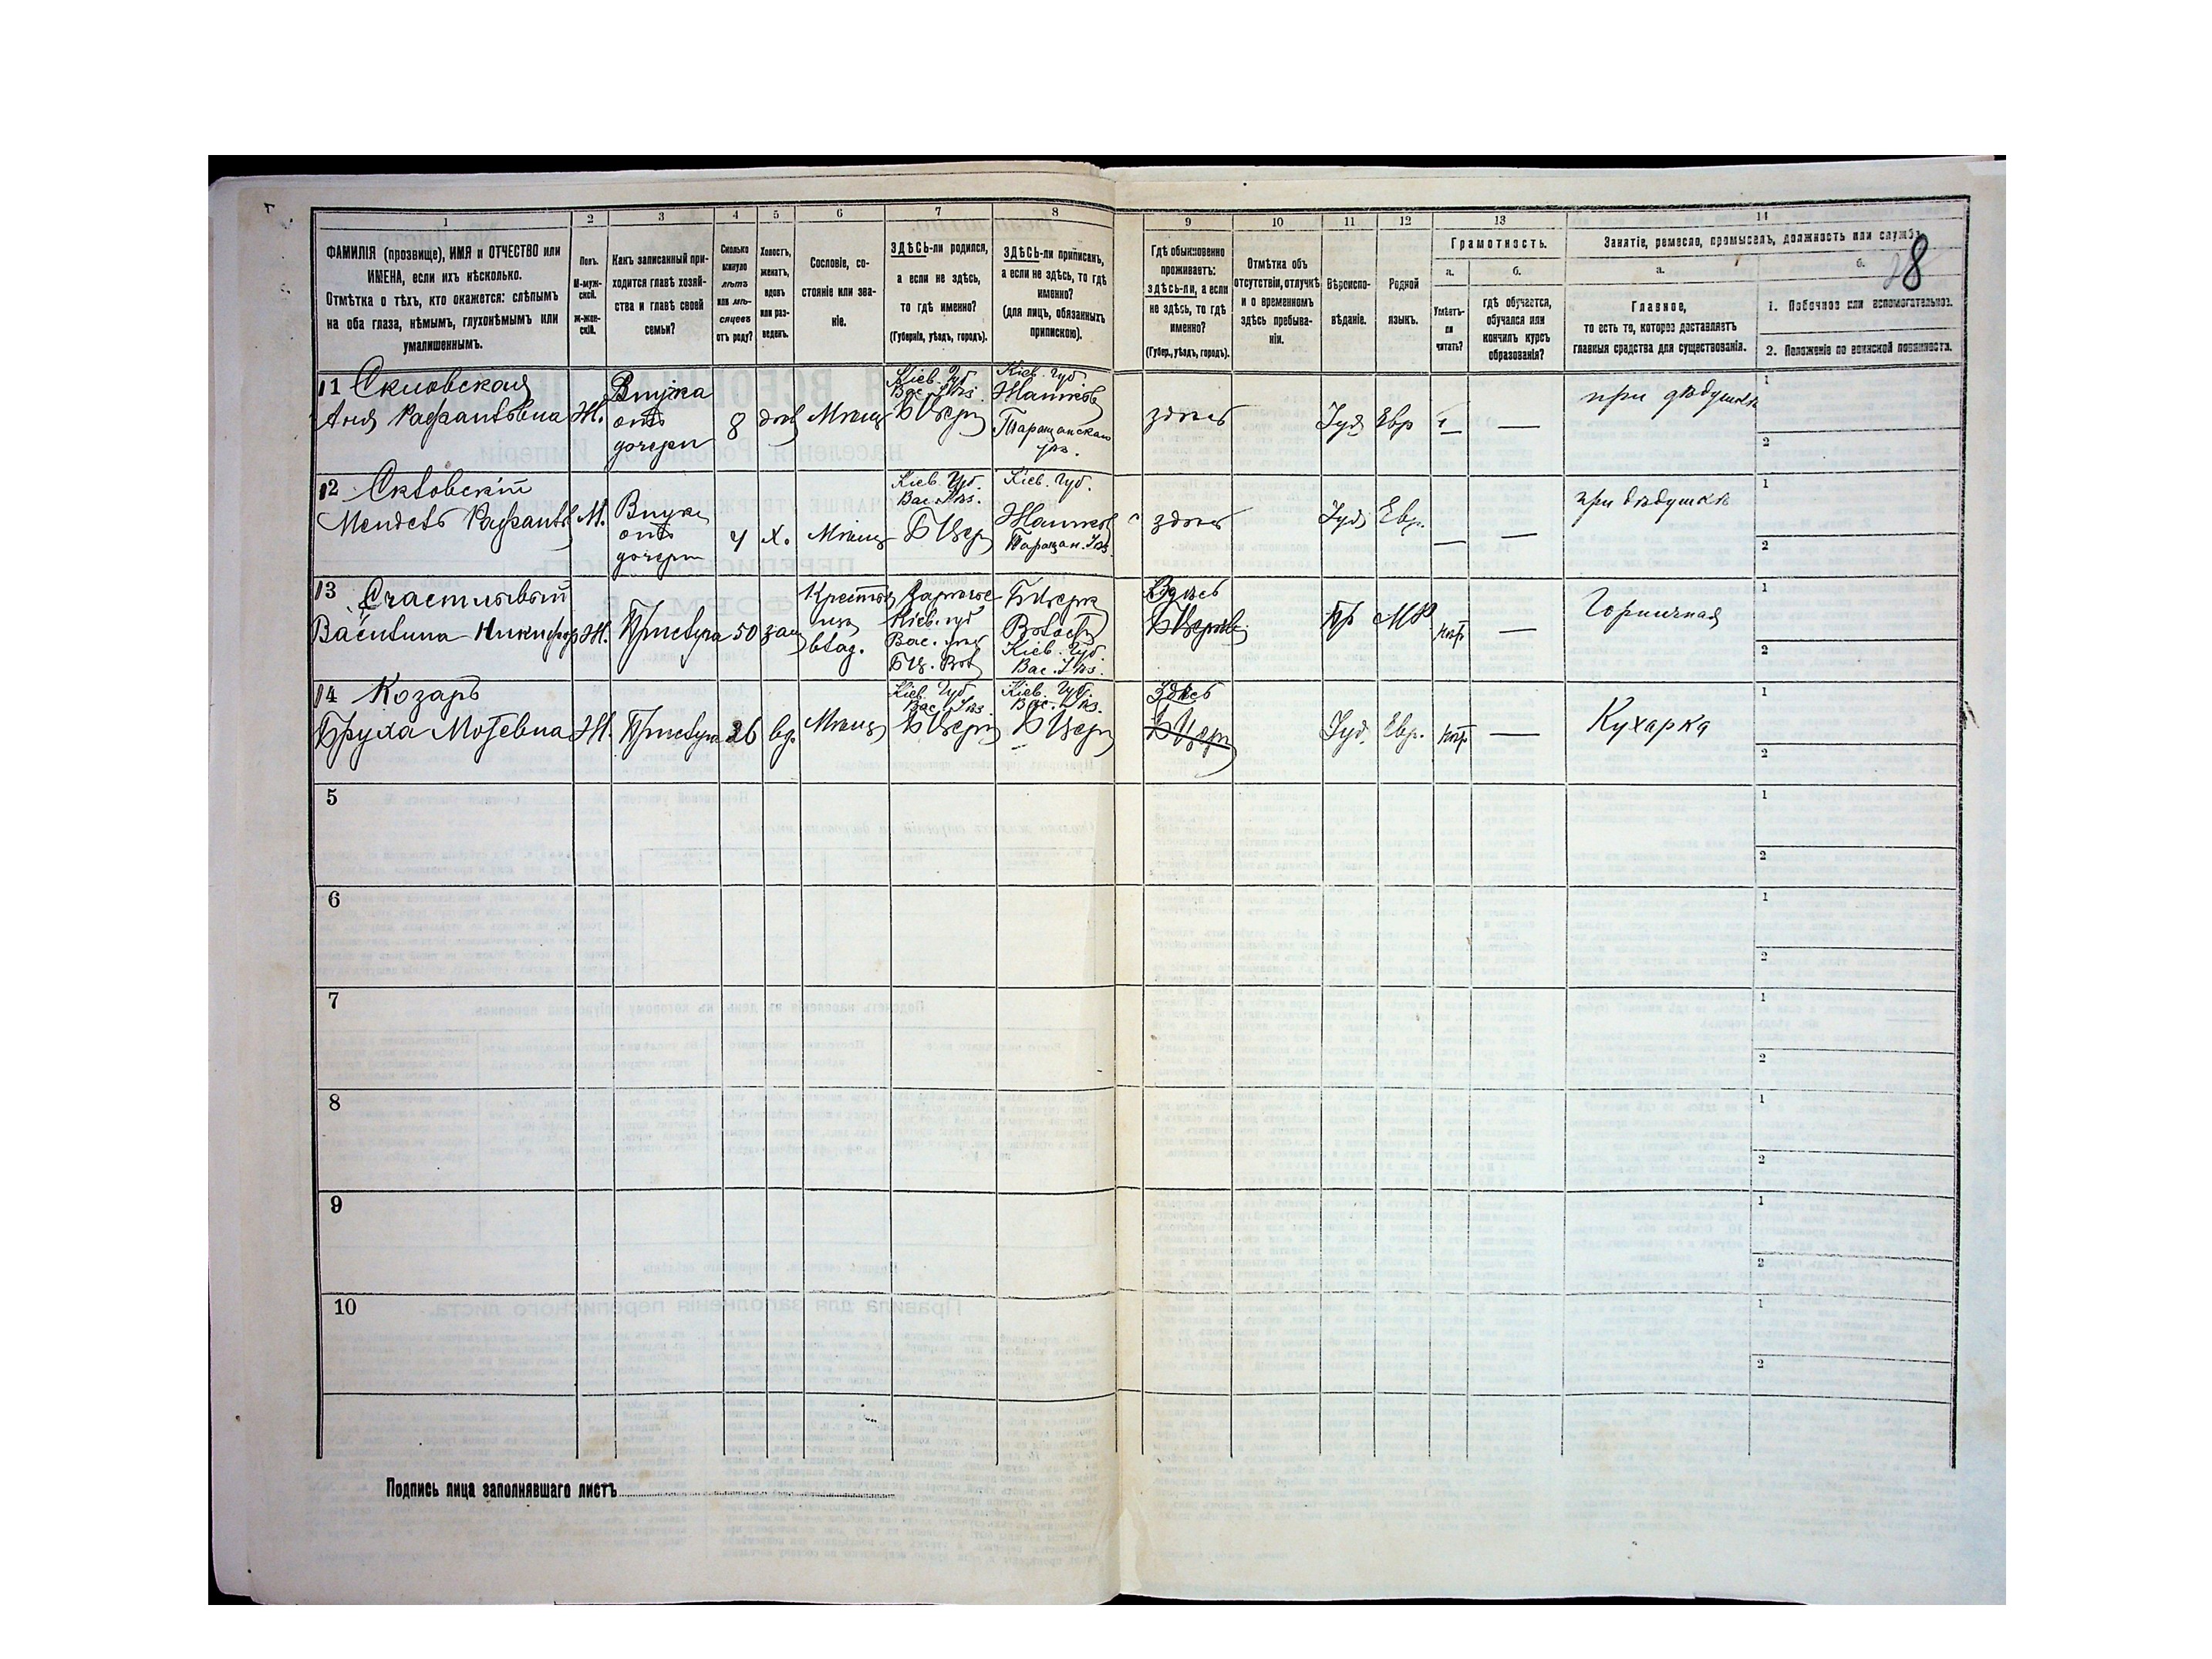 1 2 3 4 5 6 7 8 9 10 11 12 13 14
ФАМИЛІЯ (прозвище), ИМЯ и ОТЧЕСТВО или
ИМЕНА, если ихъ нѣсколько.
Отмѣтка о тѣхъ, кто окажется: слѣпымъ
на оба глаза, нѣмымъ, глухонѣмымъ или
умалишеннымъ.
Полъ.
М-муж-
ской.
Ж-жен-
скій.
Какъ записанный при-
ходится главѣ хозяй-
ства и главѣ своей
семьи?
Сколько
минуло
лѣтъ
или мѣ-
сяцевъ
отъ роду?
Холостъ,
женатъ,
вдовъ
или раз-
веденъ.
Сословіе, со-
стояніе или зва-
ніе.
ЗДѢСЬ-ли родился,
а если не здѣсь,
то гдѣ именно?
(Губернія, уѣздъ, городъ).
ЗДѢСЬ-ли приписанъ,
а если не здѣсь, то гдѣ
именно?
(для лицъ, обязанныхъ
припискою).
Гдѣ обыкновенно
проживаетъ:
здѣсь-ли, а если
не здѣсь, то гдѣ
именно?
(Губер., уѣздъ, городъ).
Отмѣтка объ
отсутствіи, отлучкѣ
и о временномъ
здѣсь пребыва-
ніи.
Вѣроиспо-
вѣданіе.
Родной
языкъ.
Грамотность.
а.
Умѣетъ-
ли
читать?
б.
гдѣ обучается,
обучался или
кончилъ курсъ
образованія?
Занятіе, ремесло, промыселъ, должность или служба.
28
а.
Главное,
то есть то, которое доставляетъ
главныя средства для существованія.
б.
1. Побочное или вспомогательное.
2. Положеніе по воинской повинности.
11
Аня
Ж.
Внучка
отъ
дочери
8
Мѣщ
Кіев. Губ.
Вас. Уѣз.
БЦерк
Кіев. Губ.
Жашков
Таращанскаго
уѣз.
здѣсь
Іуд
Евр
—
—
при дѣдушкѣ
1
2
12
Мендель
М.
Внук
отъ
дочери
4
Х.
Мѣщ
Кіев. Губ.
Вас. Уѣз.
БЦер
Кіев. Губ.
Жашков
Таращан. Уѣз.
здѣсь
Іуд
Евр.
—
—
при дѣдушкѣ
1
2
13 Счастливый
Василина Никифор
Ж.
Прислуга
50
зам
Кіев. губ
Вас. уѣз
Кіев. Губ
Вас. Уѣз.
Здѣсь
Пр
МР
—
Горничная
1
2
14 Козаръ
Бруха
Ж.
Прислуга
26
вд.
Мѣщ
Кіев. Губ
Вас. Уѣз.
БЦерк
Кіев. Губ.
Вас. Уѣз.
БЦерк
Здѣсь
БЦерк
Іуд.
Евр.
—
Кухарка
1
2
5
1
2
6
1
2
7
1
2
8
1
2
9
1
2
10
1
2
Подпись лица заполнявшаго листъ